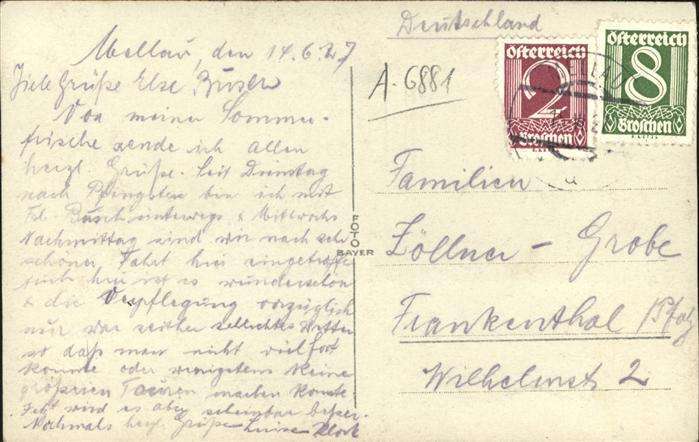 Mellau, den 14.6.27
Viele Grüße Else Buseer
Von meiner Sommer-
frische sende ich Allen
herzl. Grüße. Seit Dienstag
nach Pfingsten bin ich mit
Frl. Busch unterwegs & Mittwochs
Nachmittag sind wir nach sehr
schöner Fahrt hier eingetroffen
hier ist es wunderschön
& die Verpflegung vorzüglich
nur war seither schlechtes Wetter
so daß man nicht viel fort
konnte oder wenigstens keine
größeren Touren machen konnte
Jetzt wird es aber scheinbar besser.
Nochmals herzl. Grüße Luise
FOTO
BAYER
Deutschland
A. 6881
Österreich
2
Groschen
Österreich
8
Groschen
Familien
Zöllner - Grobe
Frankenthal Pfalz
Wilhelmstr 2